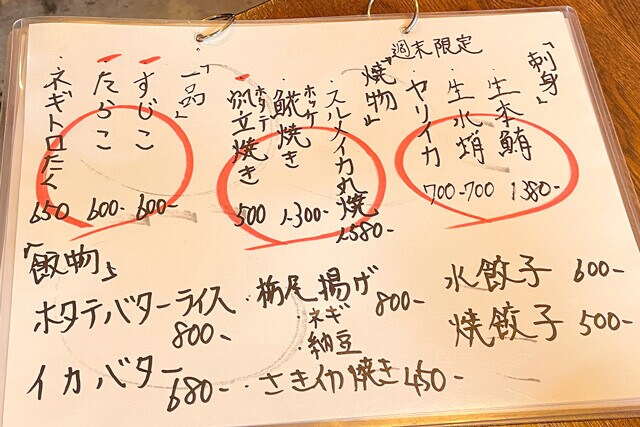 週末限定
「刺身」
・生本鮪 1380-
・生水蛸 700-
・ヤリイカ 700-
「焼物」
・スルメイカ丸焼 1,580-
ホッケ
・𩸽焼き 1,300-
ホタテ
・帆立焼き 500
「一品」
・すじこ 600-
・たらこ 600-
・ネギトロたく 650
「飯物」
ホタテバターライス 800-
イカバター 680-
・栃尾揚げ 800-
・ネギ
・納豆
・さきイカ焼き 450-
水餃子 600-
焼餃子 500-